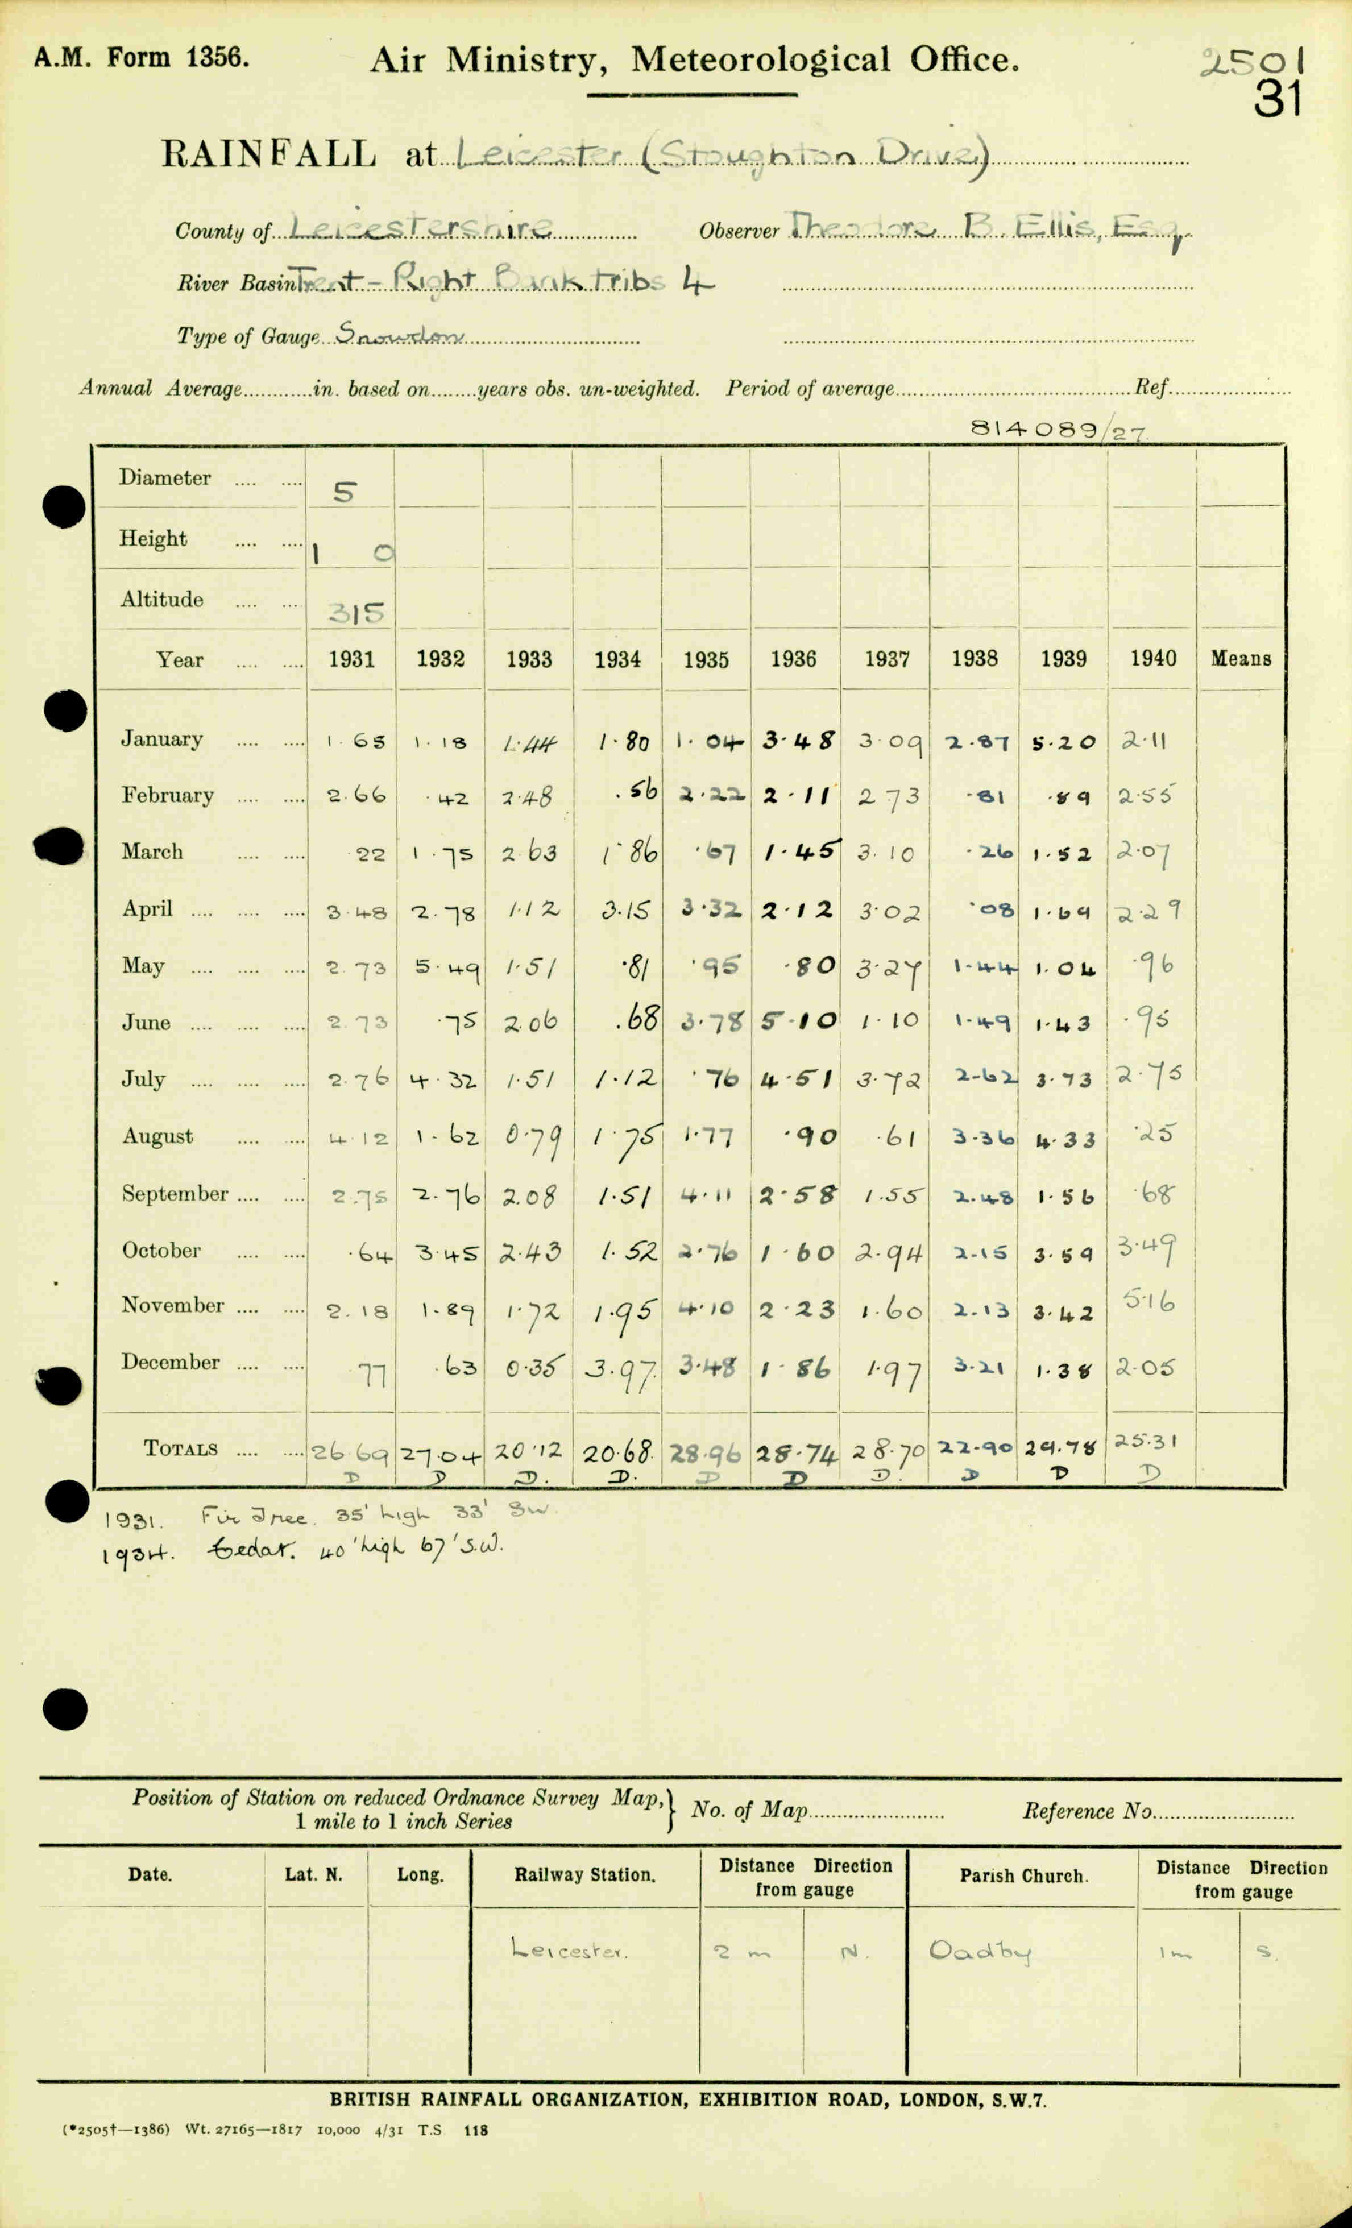 A.M. Form 1356. Air Ministry, Meteorological Office. 2501
31
RAINFALL at Leicester (Stoughton Drive)
County of Leicestershire Observer Theodore B. Ellis, Esq.
River Basin Trent - Right Bank tribs 4
Type of Gauge Snowdon
Annual Average............in. based on........years obs. un-weighted. Period of average.......... Ref..........
814089/27
Diameter .... .... 5
Height .... .... 1 0
Altitude .... .... 315
Year .... .... 1931 1932 1933 1934 1935 1936 1937 1938 1939 1940 Means
January .... .... 1.65 1.18 1.44 1.80 1.04 3.48 3.09 2.87 5.20 2.11
February .... .... 2.66 .42 2.48 .56 2.22 2.11 2.73 .81 .89 2.55
March .... .... 22 1.75 2.63 1.86 .67 1.45 3.10 .26 1.52 2.07
April .... .... .... 3.48 2.78 1.12 3.15 3.32 2.12 3.02 .08 1.69 2.29
May .... .... .... 2.73 5.49 1.51 .81 .95 .80 3.27 1.44 1.04 .96
June .... .... .... 2.73 .75 2.06 .68 3.78 5.10 1.10 1.49 1.43 .95
July .... .... .... 2.76 4.32 1.51 1.12 .76 4.51 3.72 2.62 3.73 2.75
August .... .... 4.12 1.62 0.79 1.75 1.77 .90 .61 3.36 4.33 .25
September .... .... 2.75 2.76 2.08 1.51 4.11 2.58 1.55 2.48 1.56 .68
October .... .... .64 3.45 2.43 1.52 2.76 1.60 2.94 2.15 3.59 3.49
November .... .... 2.18 1.89 1.72 1.95 4.10 2.23 1.60 2.13 3.42 5.16
December .... .... 77 .63 0.35 3.97 3.48 1.86 1.97 3.21 1.38 2.05
TOTALS .... .... 26.69 27.04 20.12 20.68 28.96 28.74 28.70 22.90 29.78 25.31
D D D. D. D D D. D D D
1931. Fir Tree. 35' high 33' SW.
1934. Cedar. 40' high 67' S.W.
Position of Station on reduced Ordnance Survey Map, 1 mile to 1 inch Series } No. of Map.......... Reference No..........
Date. Lat. N. Long. Railway Station. Distance Direction from gauge Parish Church. Distance Direction from gauge
Leicester. 2 m N. Oadby 1m S.
BRITISH RAINFALL ORGANIZATION, EXHIBITION ROAD, LONDON, S.W.7.
(*2505†—1386) Wt. 27165—1817 10,000 4/31 T.S 118